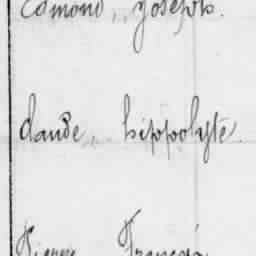 Edmond, Joseph.
Claude, hippolyte.
Pierre, François